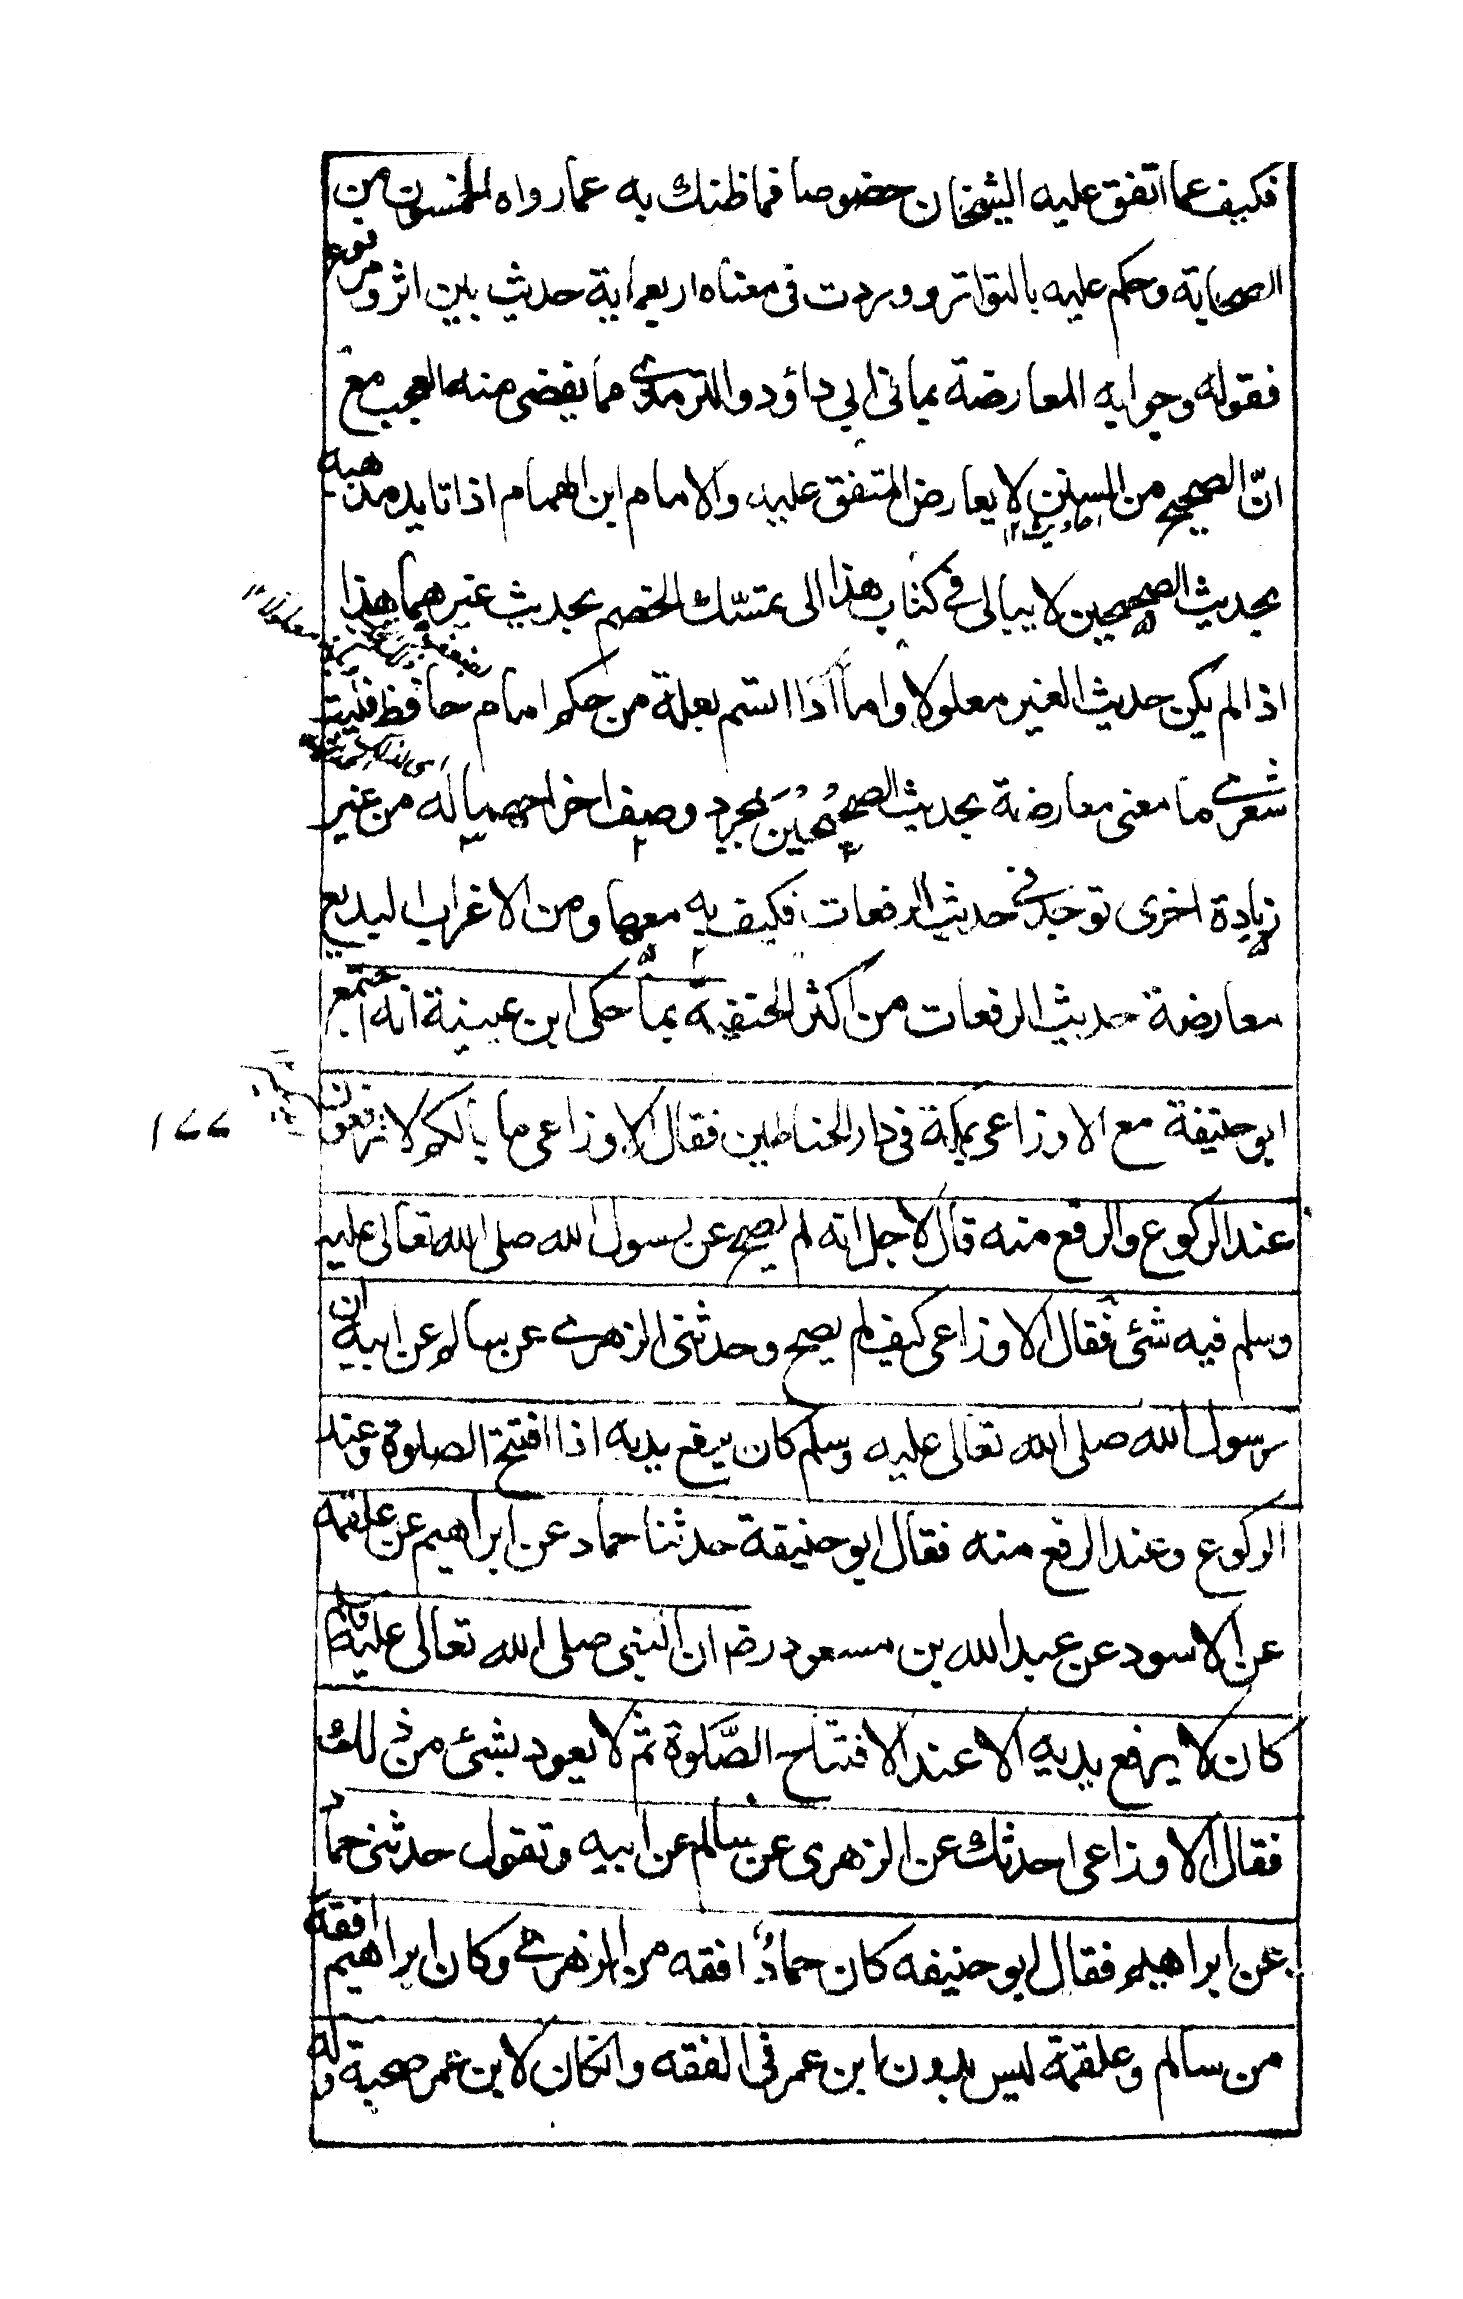 فكيف عما اتفق عليه الشيخان خصوصا فما ظنك به عما رواه الخمسون من
الصحابة وحكم عليه بالتواتر ووردت في معناه اربعماية حديث بين اثر ومرفوع
فقوله وجوابه المعارضة بما في ابي داؤد والترمذي مما يقضى منه العجب مع
انّ الصحيح من السنن لا يعارض المتفق عليه والامام ابن الهمام اذا تايد مذهبه
احاديث ١٢
بحديث الصحيحين لا يبالى في كتاب هذا الى تمسّك الخصم بحديث غيرهما هذا
اذا لم يكن حديث الغير معلولا واما اذا اتسم بعلة من حكم امام حافظ فليت
شعري ما معنى معارضة بحديث الصحيحين بمجرد وصف اخراجهما له من غير
زيادة اخرى توجد في حديث الرفعات فكيف به معها ومن الاغراب البديع
معارضة حديث الرفعات من اكثر الحنفية بما حكى ابن عيينة انه اجتمع
ابو حنيفة مع الاوزاعى بمكة فى دار الحناطين فقال الاوزاعى ما بالكم لا ترفعون
١٧٧
عند الركوع والرفع منه قال لاجل انه لم يصح عن رسول الله صلى الله تعالى عليه
وسلم فيه شئ فقال الاوزاعى كيف لم يصح وحدثنى الزهري عن سالم عن ابيه ان
رسول الله صلى الله تعالى عليه وسلم كان يرفع يديه اذا افتتح الصلوة وعند
الركوع وعند الرفع منه فقال ابو حنيفة حدثنا حماد عن ابراهيم عن علقمة
عن الاسود عن عبد الله بن مسعود رضـ ان النبى صلى الله تعالى عليه وسلم
كان لا يرفع يديه الا عند الافتتاح الصَّلوة ثم لا يعود بشئ من ذلك
فقال الاوزاعى احدثك عن الزهرى عن سالم عن ابيه وتقول حدثنى حماد
عن ابراهيم فقال ابو حنيفه كان حمادٌ افقه من الزهري وكان ابراهيم افقه
من سالم وعلقمة ليس بدون ابن عمر فى الفقه وانكان لابن عمر صحبة وله